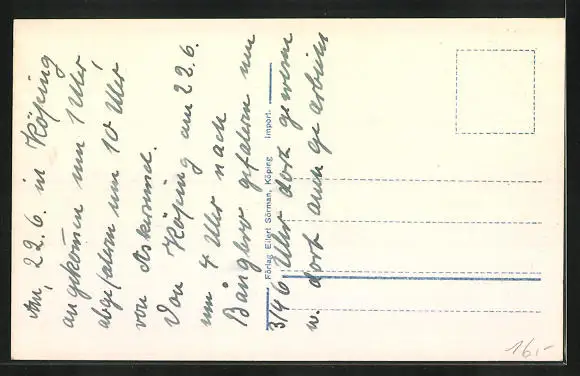 Am, 22.6. in Köping
angekommen um 1 Uhr,
abgefahren um 10 Uhr
von Askersund.
Von Köping am 22.6.
um 4 Uhr nach
Bangbro gefahren um
3/4 6 Uhr dort gewesen
u. dort auch gearbeitet
Förlag Eilert Sörman, Köping Import.
16,-